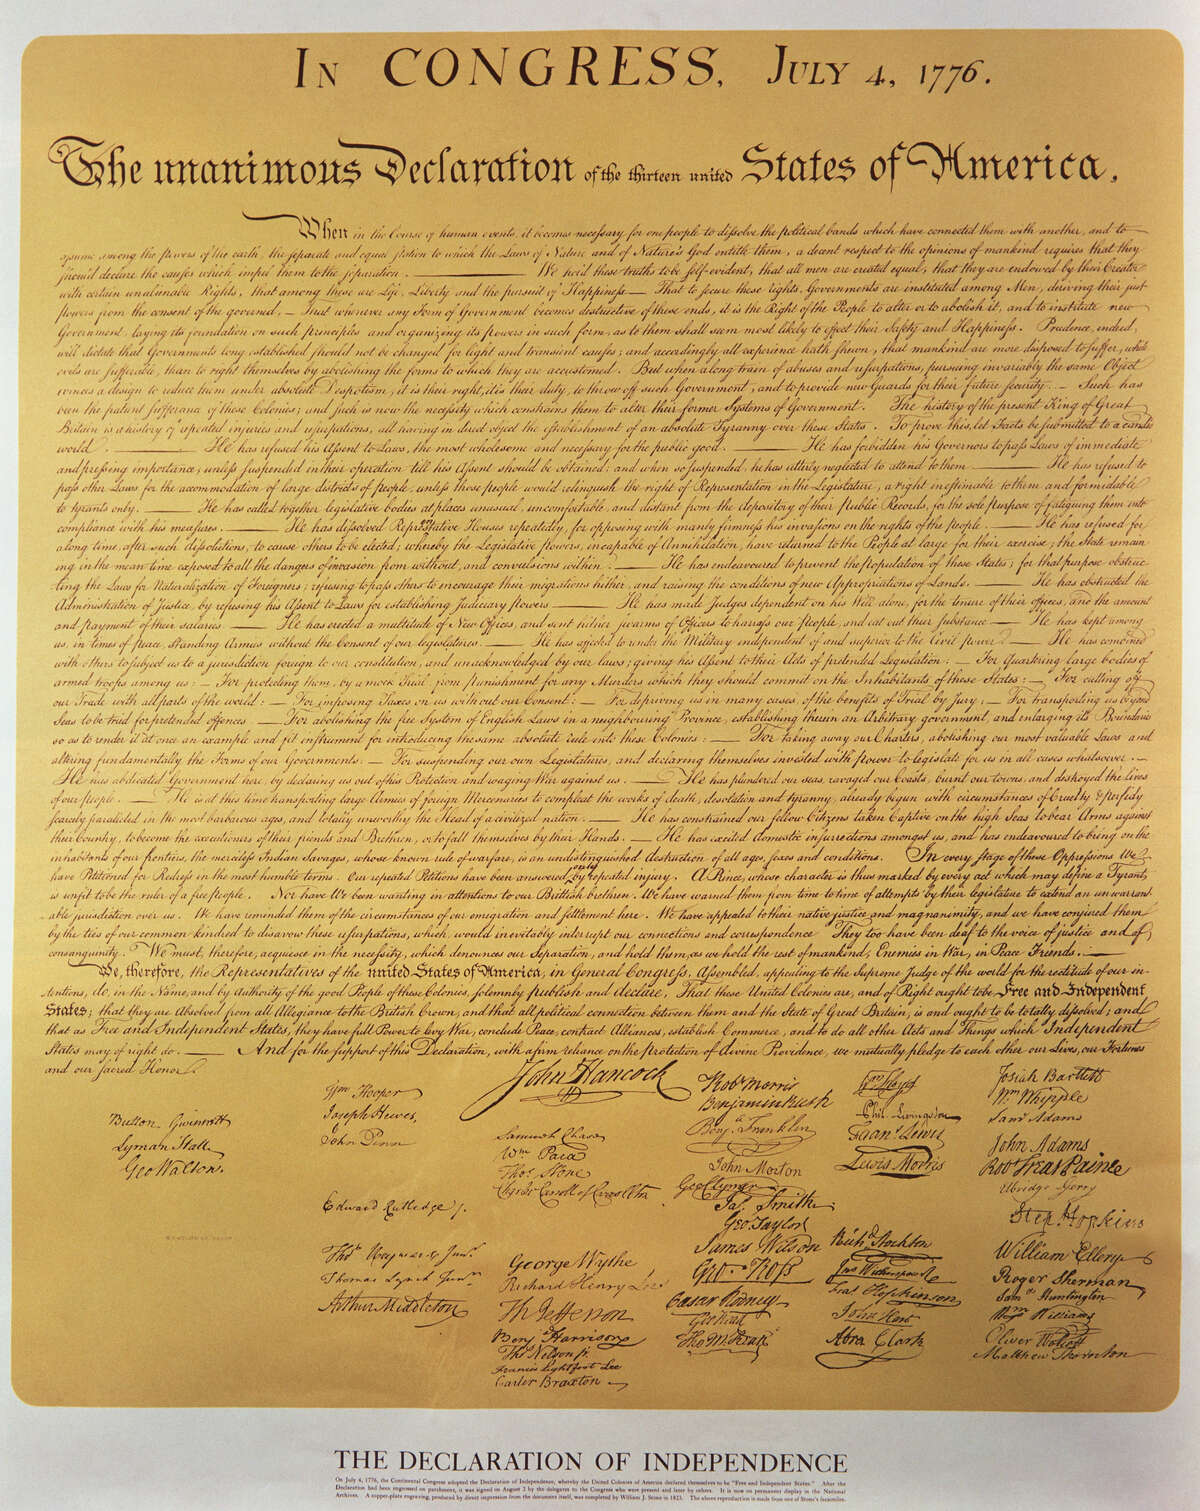 IN CONGRESS, JULY 4, 1776.
The unanimous Declaration of the thirteen united States of America,
When in the Course of human events, it becomes necessary for one people to dissolve the political bands which have connected them with another, and to
assume among the powers of the earth, the separate and equal station to which the Laws of Nature and of Nature's God entitle them, a decent respect to the opinions of mankind requires that they
should declare the causes which impel them to the separation. — We hold these truths to be self-evident, that all men are created equal, that they are endowed by their Creator
with certain unalienable Rights, that among these are Life, Liberty and the pursuit of Happiness — That to secure these rights, Governments are instituted among Men, deriving their just
powers from the consent of the governed, — That whenever any Form of Government becomes destructive of these ends, it is the Right of the People to alter or to abolish it, and to institute new
Government, laying its foundation on such principles and organizing its powers in such form, as to them shall seem most likely to effect their Safety and Happiness. Prudence, indeed,
will dictate that Governments long established should not be changed for light and transient causes; and accordingly all experience hath shewn, that mankind are more disposed to suffer, while
evils are sufferable, than to right themselves by abolishing the forms to which they are accustomed. But when a long train of abuses and usurpations, pursuing invariably the same Object
evinces a design to reduce them under absolute Despotism, it is their right, it is their duty, to throw off such Government, and to provide new Guards for their future security. — Such has
been the patient sufferance of these Colonies; and such is now the necessity which constrains them to alter their former Systems of Government. The history of the present King of Great
Britain is a history of repeated injuries and usurpations, all having in direct object the establishment of an absolute Tyranny over these States. To prove this, let Facts be submitted to a candid
world. — He has refused his Assent to Laws, the most wholesome and necessary for the public good. — He has forbidden his Governors to pass Laws of immediate
and pressing importance, unless suspended in their operation till his Assent should be obtained; and when so suspended, he has utterly neglected to attend to them. — He has refused to
pass other Laws for the accommodation of large districts of people, unless those people would relinquish the right of Representation in the Legislature, a right inestimable to them and formidable
to tyrants only. — He has called together legislative bodies at places unusual, uncomfortable, and distant from the depository of their Public Records, for the sole purpose of fatiguing them into
compliance with his measures. — He has dissolved Representative Houses repeatedly, for opposing with manly firmness his invasions on the rights of the people. — He has refused for
a long time, after such dissolutions, to cause others to be elected; whereby the Legislative powers, incapable of Annihilation, have returned to the People at large for their exercise; the State remain
ing in the mean time exposed to all the dangers of invasion from without, and convulsions within. — He has endeavoured to prevent the population of these States; for that purpose obstruc
ting the Laws for Naturalization of Foreigners; refusing to pass others to encourage their migrations hither, and raising the conditions of new Appropriations of Lands. — He has obstructed the
Administration of Justice, by refusing his Assent to Laws for establishing Judiciary powers — He has made Judges dependent on his Will alone, for the tenure of their offices, and the amount
and payment of their salaries — He has erected a multitude of New Offices, and sent hither swarms of Officers to harrass our People, and eat out their substance — He has kept among
us, in times of peace, Standing Armies without the Consent of our legislatures. — He has affected to render the Military independent of and superior to the Civil power. — He has combined
with others to subject us to a jurisdiction foreign to our constitution, and unacknowledged by our laws; giving his Assent to their Acts of pretended Legislation: — For Quartering large bodies of
armed troops among us: — For protecting them, by a mock Trial, from punishment for any Murders which they should commit on the Inhabitants of these States: — For cutting off
our Trade with all parts of the world: — For imposing Taxes on us without our Consent: — For depriving us in many cases, of the benefits of Trial by Jury; — For transporting us beyond
Seas to be tried for pretended offences — For abolishing the free System of English Laws in a neighbouring Province, establishing therein an Arbitrary government, and enlarging its Boundaries
so as to render it at once an example and fit instrument for introducing the same absolute rule into these Colonies: — For taking away our Charters, abolishing our most valuable Laws and
altering fundamentally the Forms of our Governments: — For suspending our own Legislatures, and declaring themselves invested with power to legislate for us in all cases whatsoever. —
He has abdicated Government here, by declaring us out of his Protection and waging War against us. — He has plundered our seas, ravaged our Coasts, burnt our towns, and destroyed the lives
of our people. — He is at this time transporting large Armies of foreign Mercenaries to compleat the works of death, desolation and tyranny, already begun with circumstances of Cruelty & perfidy
scarcely paralleled in the most barbarous ages, and totally unworthy the Head of a civilized nation. — He has constrained our fellow Citizens taken Captive on the high Seas to bear Arms against
their Country, to become the executioners of their friends and Brethren, or to fall themselves by their Hands. — He has excited domestic insurrections amongst us, and has endeavoured to bring on the
inhabitants of our frontiers, the merciless Indian Savages, whose known rule of warfare, is an undistinguished destruction of all ages, sexes and conditions. In every stage of these Oppressions We
have Petitioned for Redress in the most humble terms: Our repeated Petitions have been answered only by repeated injury. A Prince, whose character is thus marked by every act which may define a Tyrant,
is unfit to be the ruler of a free people. Nor have We been wanting in attentions to our Brittish brethren. We have warned them from time to time of attempts by their legislature to extend an unwarrant
able jurisdiction over us. We have reminded them of the circumstances of our emigration and settlement here. We have appealed to their native justice and magnanimity, and we have conjured them
by the ties of our common kindred to disavow these usurpations, which, would inevitably interrupt our connections and correspondence. They too have been deaf to the voice of justice and of
consanguinity. We must, therefore, acquiesce in the necessity, which denounces our Separation, and hold them, as we hold the rest of mankind, Enemies in War, in Peace Friends. —
We, therefore, the Representatives of the united States of America, in General Congress, Assembled, appealing to the Supreme Judge of the world for the rectitude of our in-
tentions, do, in the Name, and by Authority of the good People of these Colonies, solemnly publish and declare, That these United Colonies are, and of Right ought to be Free and Independent
States; that they are Absolved from all Allegiance to the British Crown, and that all political connection between them and the State of Great Britain, is and ought to be totally dissolved; and
that as Free and Independent States, they have full Power to levy War, conclude Peace, contract Alliances, establish Commerce, and to do all other Acts and Things which Independent
States may of right do. — And for the support of this Declaration, with a firm reliance on the protection of divine Providence, we mutually pledge to each other our Lives, our Fortunes
and our sacred Honor.
Button Gwinnett
Lyman Hall
Geo Walton.
Wm Hooper
Joseph Hewes,
John Penn
Edward Rutledge /.
Thos Heyward Junr.
Thomas Lynch Junr.
Arthur Middleton
John Hancock
Samuel Chase
Wm Paca
Thos Stone
Charles Carroll of Carrollton
George Wythe
Richard Henry Lee
Th Jefferson
Benj Harrison
Thos Nelson jr.
Francis Lightfoot Lee
Carter Braxton
Robt Morris
Benjamin Rush
Benja Franklin
John Morton
Geo Clymer
Jas Smith
Geo Taylor
James Wilson
Geo. Ross
Caesar Rodney
Geo Read
Tho M:Kean
Wm Floyd
Phil. Livingston
Frans Lewis
Lewis Morris
Richd Stockton
Jno Witherspoon
Fras Hopkinson
John Hart
Abra Clark
Josiah Bartlett
Wm Whipple
Saml Adams
John Adams
Robt Treat Paine
Elbridge Gerry
Step. Hopkins
William Ellery
Roger Sherman
Saml Huntington
Wm Williams
Oliver Wolcott
Matthew Thornton
THE DECLARATION OF INDEPENDENCE
On July 4, 1776, the Continental Congress adopted the Declaration of Independence, whereby the United Colonies of America declared themselves to be "Free and Independent States." After the
Declaration had been engrossed on parchment, it was signed on August 2 by the delegates to the Congress who were present and later by others. It is now on permanent display in the National
Archives. A copper-plate engraving, produced by direct impression from the document itself, was completed by William J. Stone in 1823. The above reproduction is made from one of Stone's facsimiles.